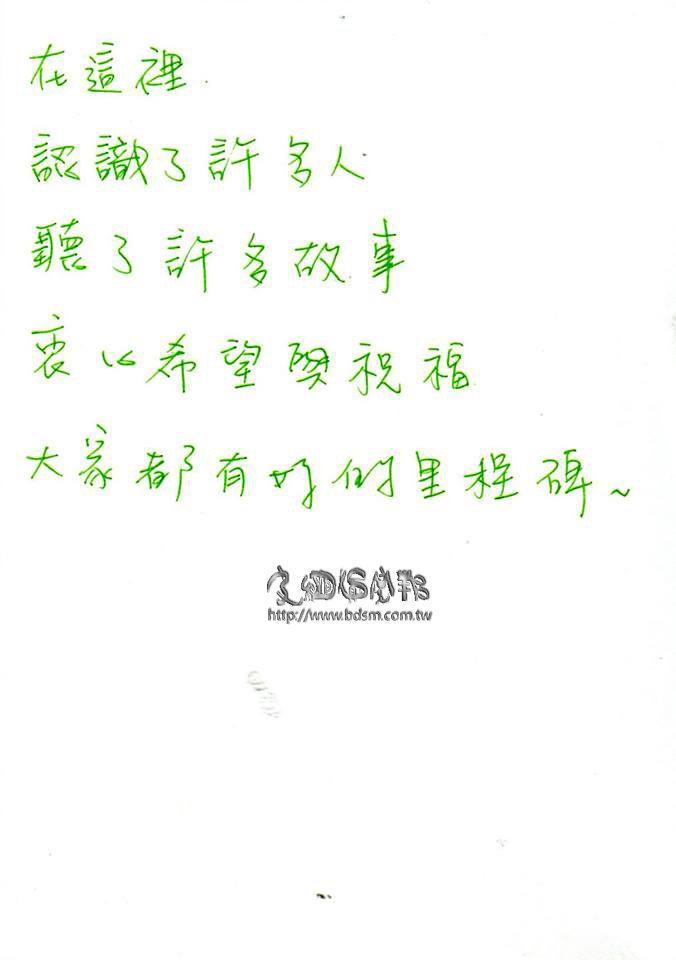 在這裡.
認識了許多人
聽了許多故事
衷心希望與祝福
大家都有好的里程碑~
http://www.bdsm.com.tw